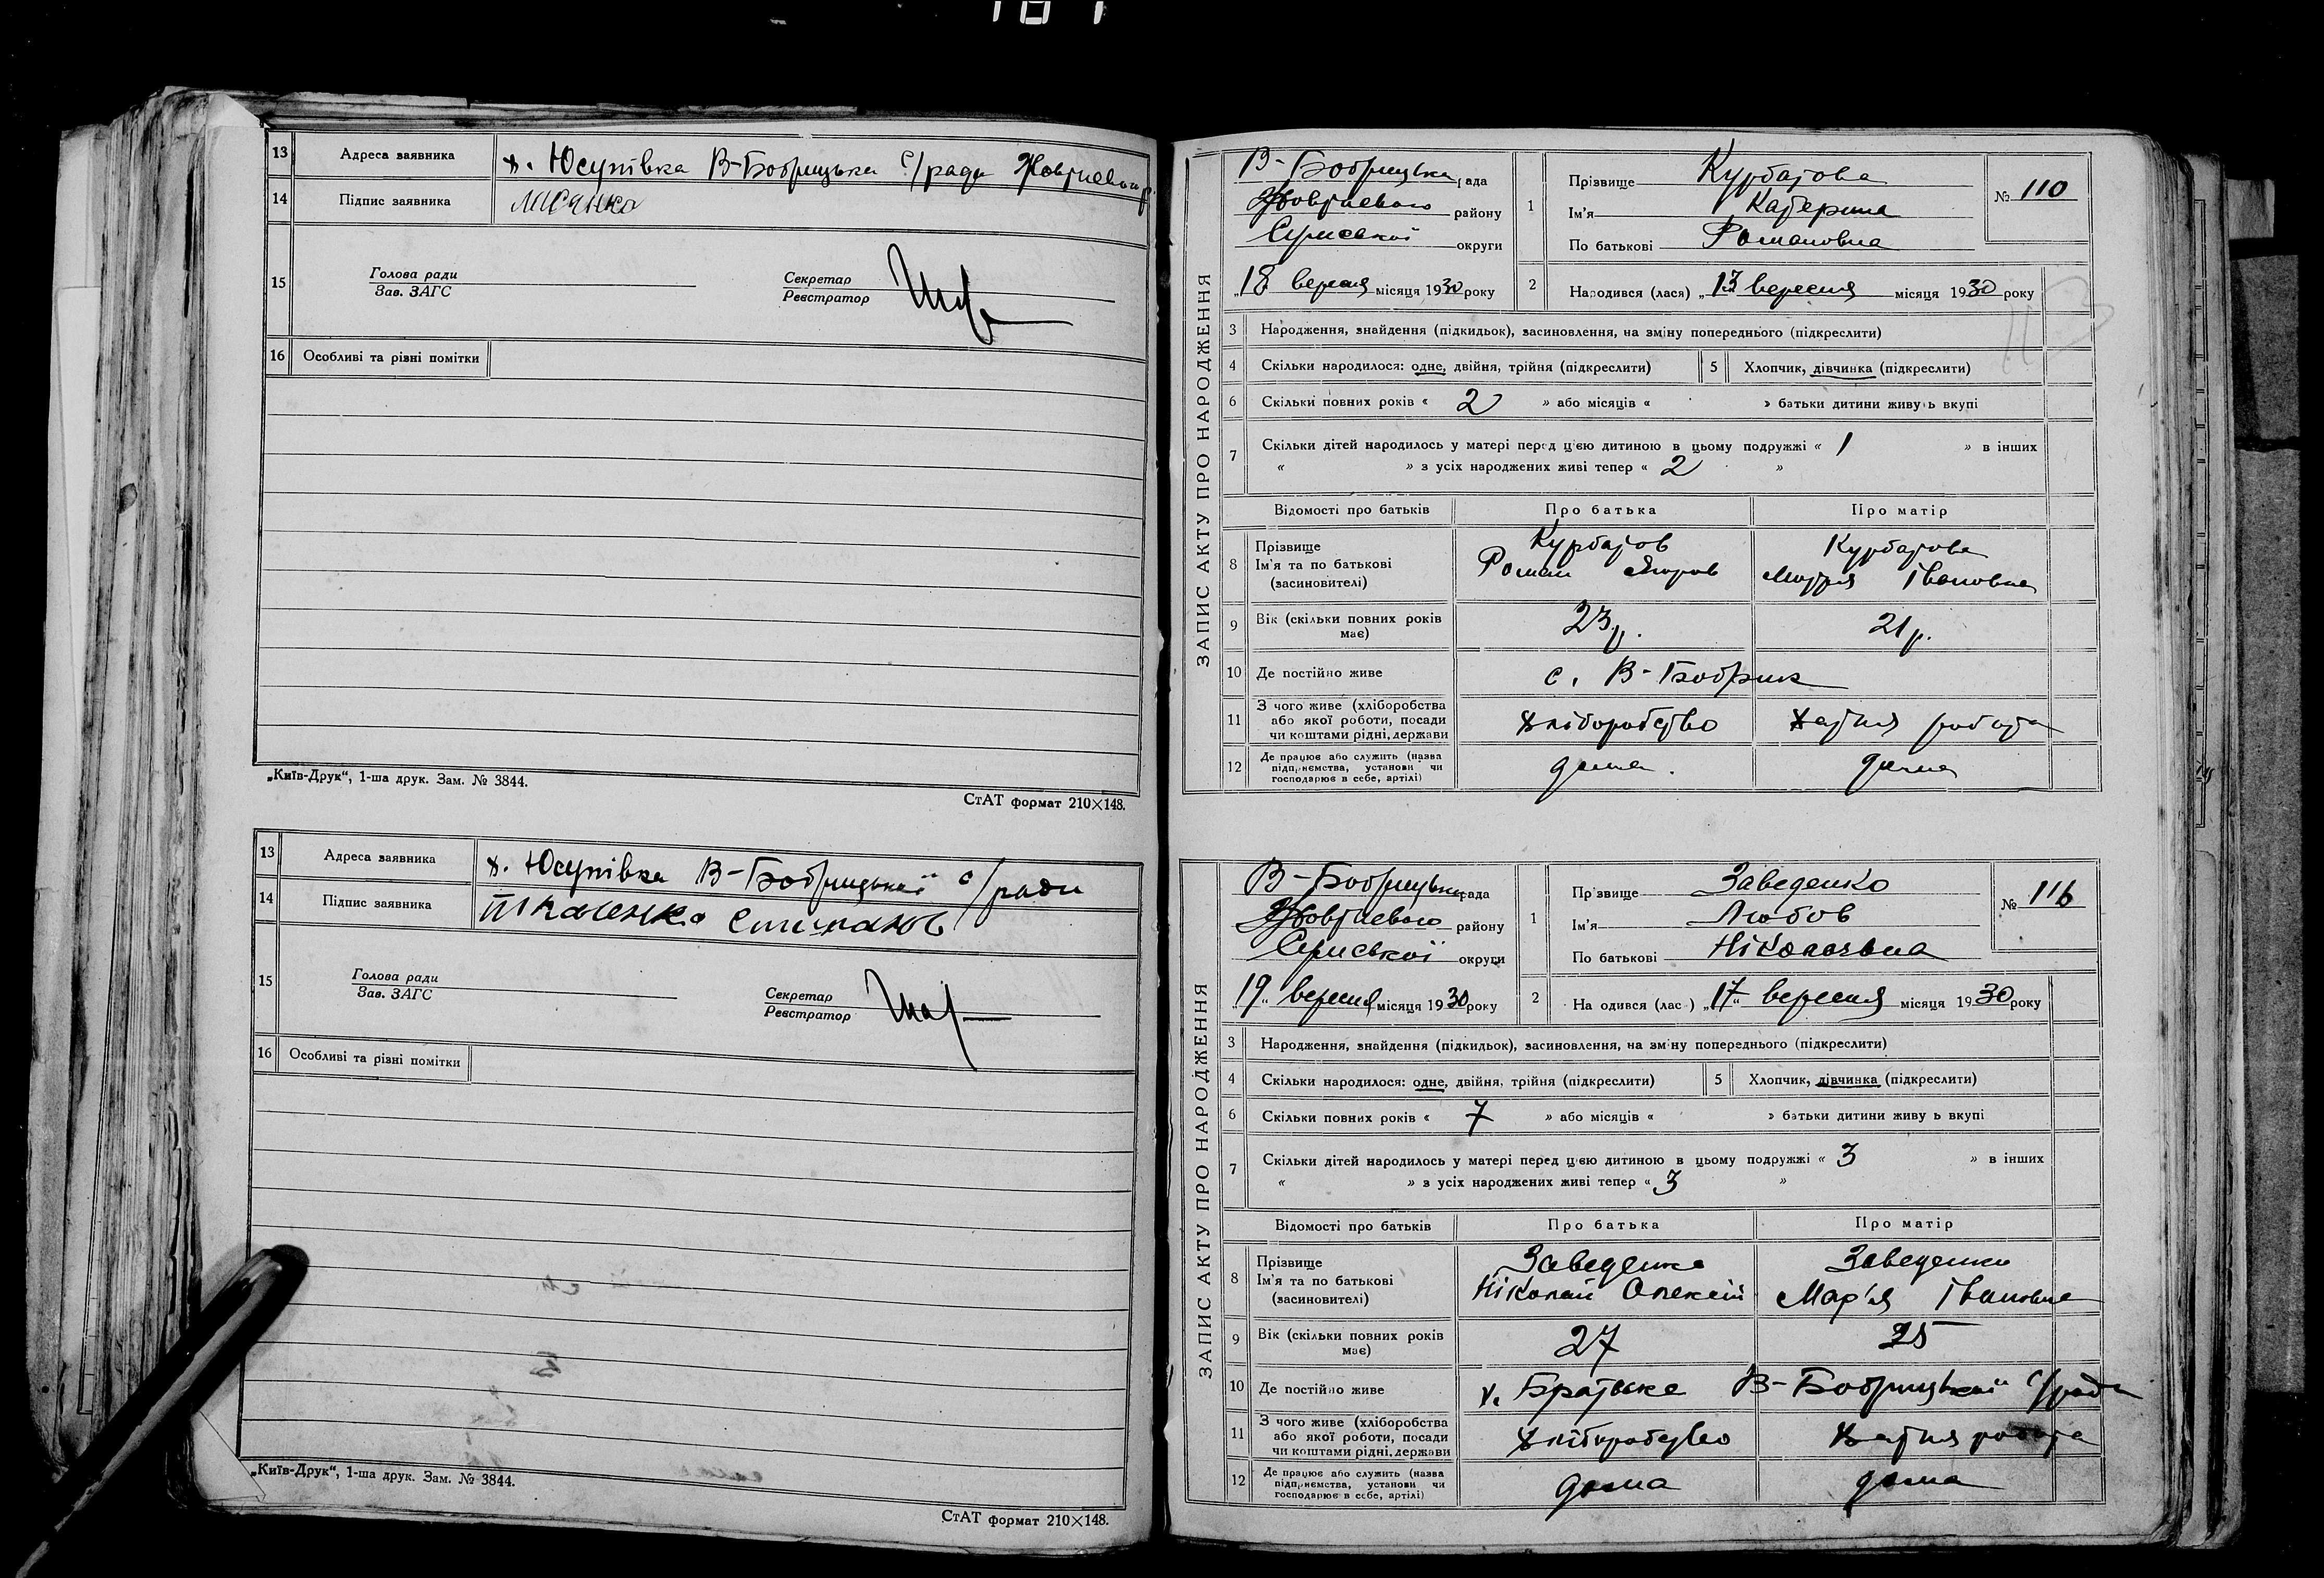 13 Адреса заявника х. Юсупівка В-Бобрицька с/ради
14 Підпис заявника
15 Голова ради
Зав. ЗАГС
Секретар
Реєстратор
16 Особливі та різні помітки
„Київ-Друк“, 1-ша друк. Зам. № 3844.
СтАТ формат 210×148.
13 Адреса заявника х. Юсупівка В-Бобрицької с/ради
14 Підпис заявника
15 Голова ради
Зав. ЗАГС
Секретар
Реєстратор
16 Особливі та різні помітки
„Київ-Друк“, 1-ша друк. Зам. № 3844.
СтАТ формат 210×148.
ЗАПИС АКТУ ПРО НАРОДЖЕННЯ
В-Бобрицька рада
Жовтневого району
Сумської округи
„18 вересня місяця 1930 року
1 Прізвище Курбатова
Ім'я Катерина
По батькові Романовна
№ 110
2 Народився (лася) „13 вересня місяця 1930 року
3 Народження, знайдення (підкидьок), засиновлення, на зміну попереднього (підкреслити)
4 Скільки народилося: одне, двійня, трійня (підкреслити) 5 Хлопчик, дівчинка (підкреслити)
6 Скільки повних років « 2 » або місяців « » батьки дитини живу ь вкупі
7 Скільки дітей народилось у матері перед цією дитиною в цьому подружжі « 1 » в інших
« » з усіх народжених живі тепер « 2 »
Відомості про батьків Про батька Про матір
8 Прізвище Ім'я та по батькові (засиновителі)
Курбатов Роман Егоров
Курбатова Ивановна
9 Вік (скільки повних років має) 23 р. 21 р.
10 Де постійно живе с. В-Бобрик
11 З чого живе (хліборобства або якої роботи, посади чи коштами рідні, держави
хліборобство хатня робота
12 Де працює або служить (назва підприємства, установи чи господарює в себе, артілі)
дома. дома
ЗАПИС АКТУ ПРО НАРОДЖЕННЯ
В-Бобрицька рада
Жовтневого району
Сумської округи
„19“ вересня місяця 1930 року
1 Прізвище Заведенко
Ім'я Любов
По батькові Ніколаєвна
№ 116
2 На одився (лас ) „17“ вересня місяця 1930 року
3 Народження, знайдення (підкидьок), засиновлення, на зміну попереднього (підкреслити)
4 Скільки народилося: одне, двійня, трійня (підкреслити) 5 Хлопчик, дівчинка (підкреслити)
6 Скільки повних років « 7 » або місяців « » батьки дитини живу ь вкупі
7 Скільки дітей народилось у матері перед цією дитиною в цьому подружжі « 3 » в інших
« » з усіх народжених живі тепер « 3 »
Відомості про батьків Про батька Про матір
8 Прізвище Ім'я та по батькові (засиновителі)
Заведенко Ніколай Олексій
Заведенко Мар'я Івановна
9 Вік (скільки повних років має) 27 25
10 Де постійно живе х. Братське В-Бобрицької с/ради
11 З чого живе (хліборобства або якої роботи, посади чи коштами рідні, держави
хліборобство хатня робота
12 Де працює або служить (назва підприємства, установи чи господарює в себе, артілі)
дома дома